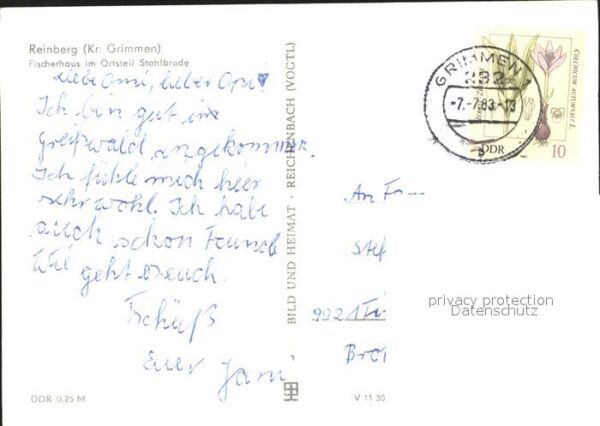 Reinberg (Kr. Grimmen)
Fischerhaus im Ortsteil Stahlbrode
Liebe Omi, lieber Opi!
Ich bin gut in
Greifswald angekommen.
Ich fühle mich hier
sehr wohl. Ich habe
auch schon Freunde
Wie geht es euch.
Tschüß
euer
DDR 0,25 M
BILD UND HEIMAT · REICHENBACH (VOGTL)
V 11 50
GRIMMEN 1
-7.-7.83.-13
b
COLCHICUM AUTUMNALE L.
DDR
10
An Fa
Stef
992
Bro
privacy protection
Datenschutz